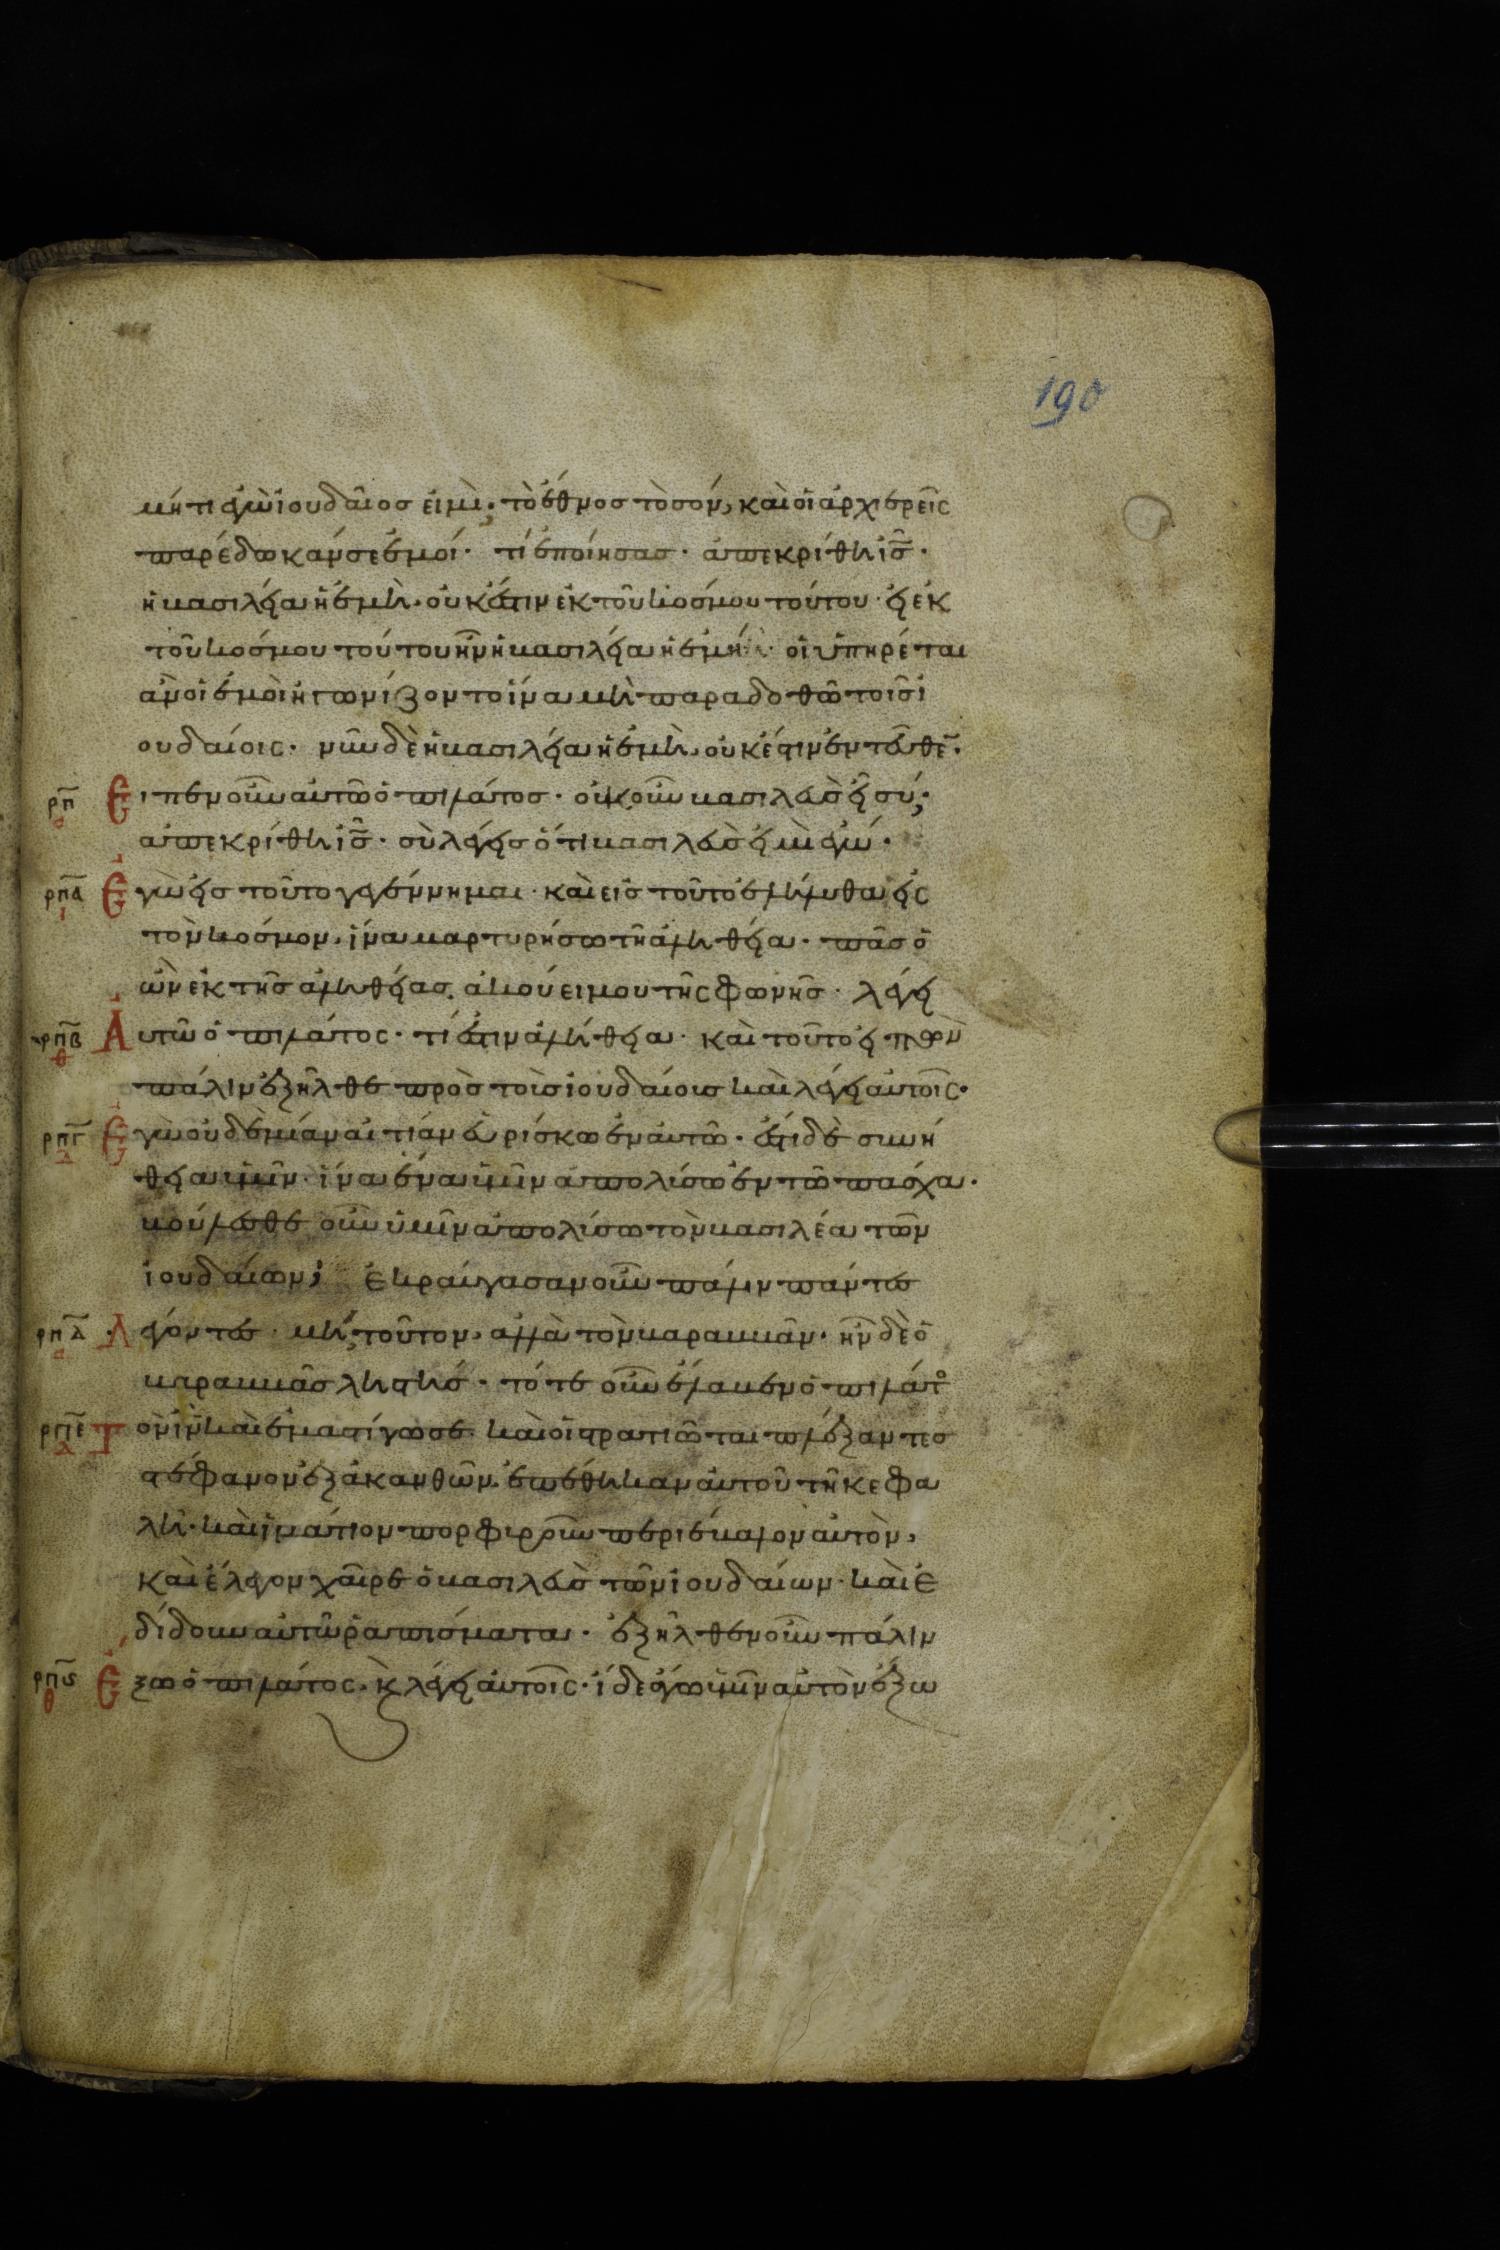 190
μήτι ἐγὼ ἰουδαῖος εἰμὶ; τὸ ἔθνος τὸ σόν, καὶ οἱ ἀρχιερεῖς
παρέδωκάν σε ἐμοί· τί ἐποίησας· ἀπεκρίθη ἰς̅·
ἡ βασιλεία ἡ ἐμὴ. οὐκ ἔστιν ἐκ τοῦ κόσμου τούτου· εἰ ἐκ
τοῦ κόσμου τούτου ἦν ἡ βασιλεία ἡ ἐμή· οἱ ὑπηρέται
ἂν οἱ ἐμοὶ ἠγωνίζοντο ἵνα μὴ παραδοθῶ τοῖς ἰ
ουδαίοις· νῦν δὲ ἡ βασιλεία ἡ ἐμὴ. οὐκ ἔστιν ἐντεῦθε̅·
ρπ Εἶπεν οὖν αὐτῶ ὁ πιλάτος· οὐκοῦν βασιλεὺς εἶ σύ;
ἀπεκρίθη ἰς̅· σὺ λέγεις ὅτι βασιλεὺς εἰμὶ ἐγώ·
ρπα Ἐγὼ εἰς τοῦτο γεγέννημαι· καὶ εἰς τοῦτο ἐλήλυθα εἰς
τὸν κόσμον, ἵνα μαρτυρήσω τῆ ἀληθεία· πᾶς ὁ
ὢν ἐκ τῆς ἀληθείας, ἀκούει μου τῆς φωνῆς· λέγει
ρπβ Αὐτῶ ὁ πιλάτος· τί ἐστιν ἀλήθεια· καὶ τοῦτο εἰπὼν
πάλιν ἐξῆλθε πρὸς τοὶς ἰουδαίοις καὶ λέγει αὐτοῖς·
ρπγ Ἐγὼ οὐδὲμίαν αἰτίαν εὑρίσκω ἐν αὐτῶ· ἔστι δὲ συνή
θεια ὑμῖν· ἵνα ἕνα ὑμῖν ἀπολίσω ἐν τῶ πάσχα·
βούλεσθε οὖν ὑμῖν ἀπολίσω τὸν βασιλέα τῶν
ἰουδαίων; ἐκραύγασαν οὖν πάλιν πάντες
ρπδ Λέγοντες· μὴ τοῦτον, ἀλλὰ τὸν βαραββᾶν· ἦν δὲ ὁ
βαραββᾶς ληστής· τότε οὖν ἔλαβεν ὁ πιλάτο
ρπε Τὸν ἰν̅ καὶ ἐμαστίγωσε· καὶ οἱ στρατιῶται πλέξαντες
στέφανον ἐξ ἀκανθῶν. ἐπέθηκαν αὐτοῦ τῆ κεφα
λῆ· καὶ ἱμάτιον πορφιροῦν περιέβαλον αὐτὸν,
καὶ ἔλεγον χαῖρε ὁ βασιλεὺς τῶν ἰουδαίων· καὶ ἐ
δίδουν αὐτῶ ῥαπίσματα· ἐξῆλθεν οὖν πάλιν
ρπς Ἔξω ὁ πιλάτος. κ̀ λέγει αὐτοῖς· ἴδε ἄγω ὑμῖν αὐτὸν ἔξω